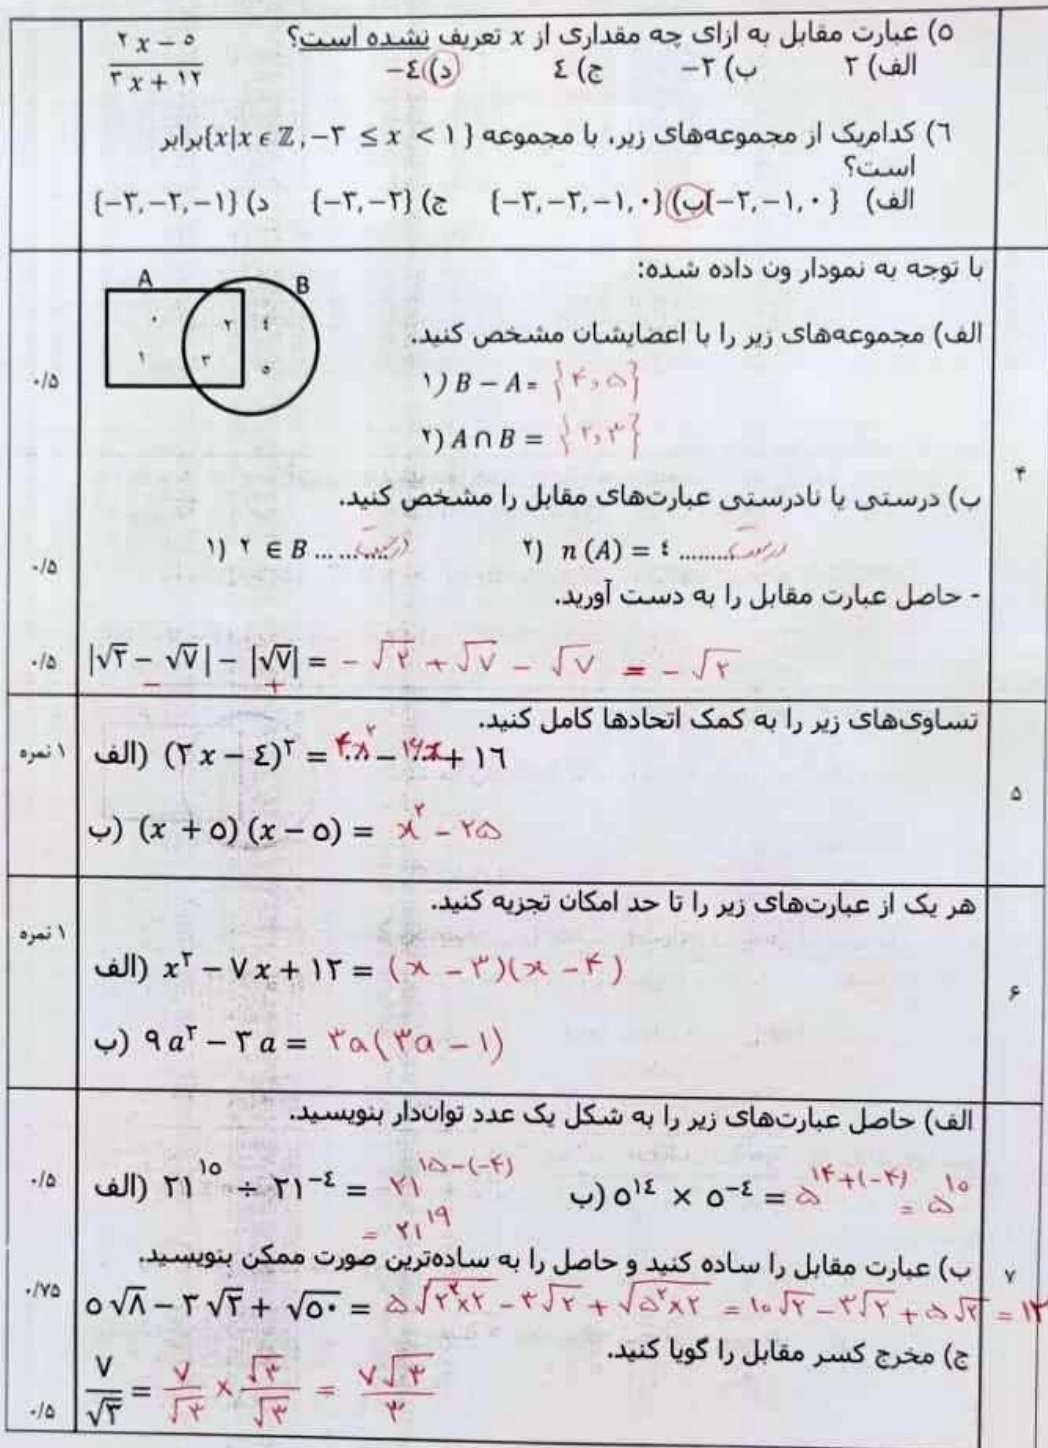 ۵) عبارت مقابل به ازای چه مقداری از x تعریف نشده است؟ (۲x − ۵)/(۳x + ۱۲)
الف) ۲ ب) ۲− ج) ٤ د) ٤−
٦) کدام‌یک از مجموعه‌های زیر، با مجموعه {x|x ϵ ℤ, −۳ ≤ x < ۱} برابر
است؟
الف) {−۲, −۱, ۰} ب) {−۳, −۲, −۱, ۰} ج) {−۳, −۲} د) {−۳, −۲, −۱}
با توجه به نمودار ون داده شده:
A B
۰ ۲ ٤
۱ ۳ ۵
الف) مجموعه‌های زیر را با اعضایشان مشخص کنید.
۰/۵ ۱) B − A = {۴, ۵}
۲) A ∩ B = {۲, ۳}
۴
ب) درستی یا نادرستی عبارت‌های مقابل را مشخص کنید.
۰/۵ ۱) ۲ ∈ B ...... درست ۲) n (A) = ٤ ........ درست
- حاصل عبارت مقابل را به دست آورید.
۰/۵ |√۲ − √۷| − |√۷| = − √۲ + √۷ − √۷ = − √۲
− +
تساوی‌های زیر را به کمک اتحادها کامل کنید.
۱ نمره الف) (۲x − ٤)² = ۴x² − ۱۶x + ۱٦
۵
ب) (x + ۵) (x − ۵) = x² − ۲۵
هر یک از عبارت‌های زیر را تا حد امکان تجزیه کنید.
۱ نمره
الف) x² − ۷x + ۱۲ = (x − ۳)(x − ۴)
۶
ب) ۹a² − ۳a = ۳a(۳a − ۱)
الف) حاصل عبارت‌های زیر را به شکل یک عدد توان‌دار بنویسید.
۰/۵ الف) ۲۱^۱۵ ÷ ۲۱^−٤ = ۲۱^۱۵−(−۴) ب) ۵^۱٤ × ۵^−٤ = ۵^۱۴+(−۴) = ۵^۱۰
= ۲۱^۱۹
ب) عبارت مقابل را ساده کنید و حاصل را به ساده‌ترین صورت ممکن بنویسید.
۷
۰/۷۵ ۵√۸ − ۳√۲ + √۵۰ = ۵√۲²×۲ − ۳√۲ + √۵²×۲ = ۱۰√۲ − ۳√۲ + ۵√۲ = ۱۲
ج) مخرج کسر مقابل را گویا کنید.
۰/۵ ۷/√۳ = ۷/√۳ × √۳/√۳ = ۷√۳/۳